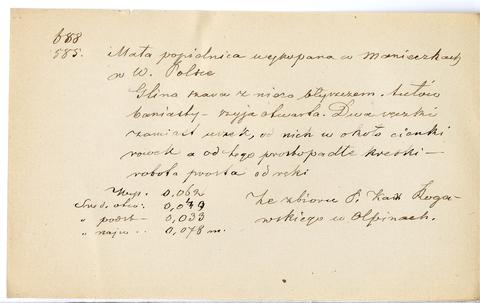 588
585. Mała popielnica wykopana w Manieczkach
w W. Polsce
Glina szara z nieco błyszczem. Tułów
baniasty - szyja otwarta. Dwa uszki
zamiast uszek, od nich w około cienki
rowek a od tego prostopadłe kreski -
robota prosta od ręki
Wys. 0,062
Śred. otw: 0,049
" podst - 0,033
" najw .. 0,078 m.
Ze zbioru P. Kar Roga-
wskiego w Ołpinach.